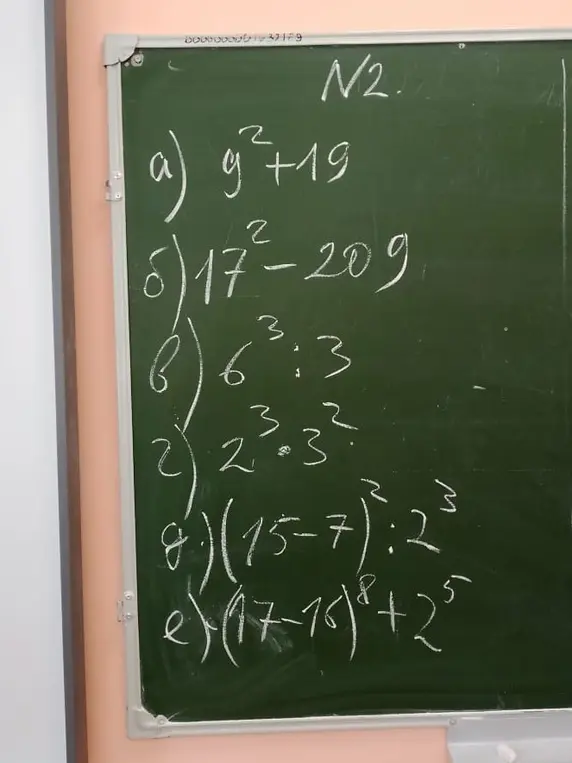 N2.
а) 9² + 19
б) 17² - 209
в) 6³ : 3
г) 2³ · 3²
д) (15 - 7)² : 2³
е) (17 - 16)⁸ + 2⁵